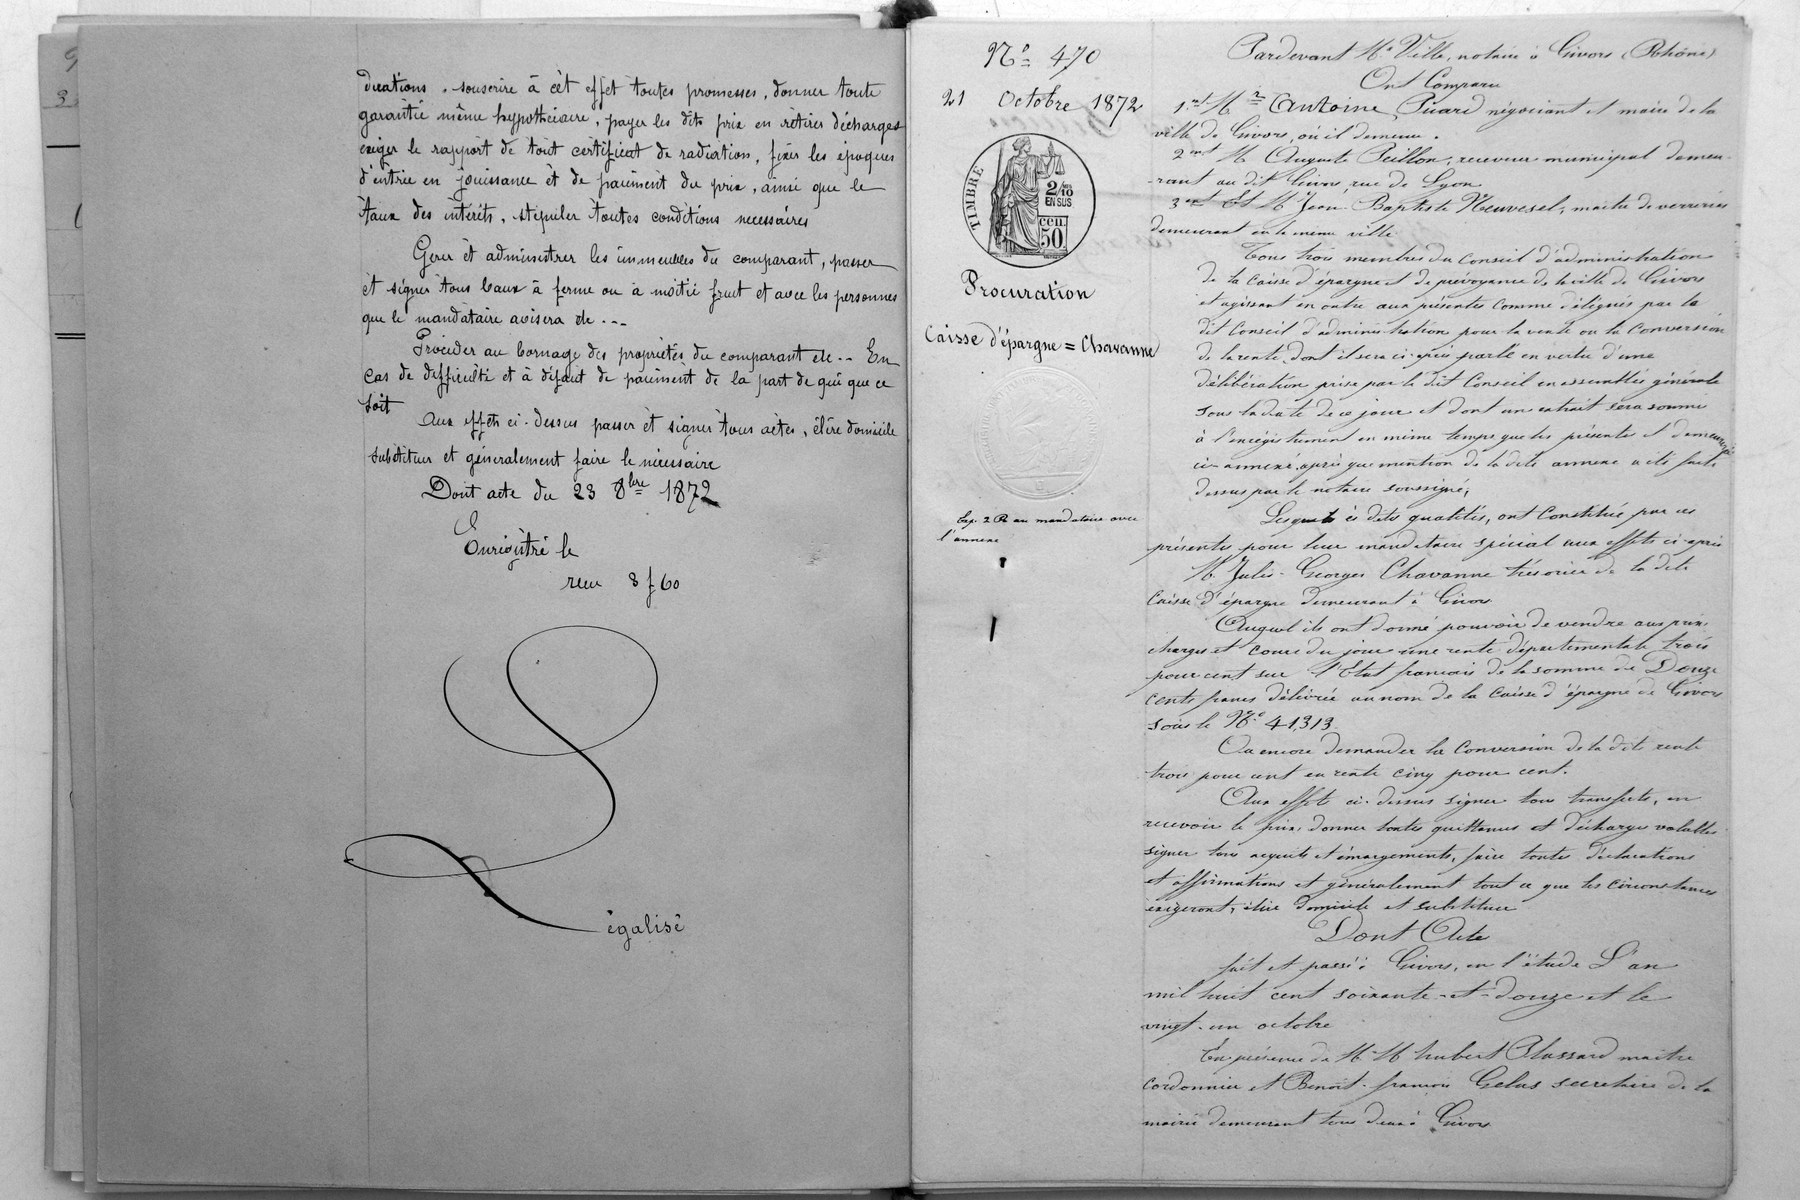 dications, souscrire à cèt effet toutes promesses, donner toute
garantie même hypothécaire, payer les dits prix en rétirer décharges
éxiger le rapport de tout certificat de radiation, fixer les époques
d'entrée en jouissance èt de paiement du prix, ainsi que le
taux des intérêts, stipuler toutes conditions necessaires
Gérer èt administrer les immeubles du comparant, passer
èt signer tous baux à ferme ou à moitié fruit et avec les personnes
que le mandataire avisera etc...
Procéder au bornage des propriétés du comparant etc... En
cas de difficulté et à défaut de paiement de la part de qui que ce
soit
Aux effets ci-dessus passer èt signer tous actes, élire domicile
substituer et généralement faire le nécessaire
Dont acte du 23 8bre 1872
Enrigistré le
reçu 3f60
Légalisé
N° 470
21 Octobre 1872
TIMBRE
2/10
EN SUS
50 cen.
Procuration
Caisse d'épargne = Chavanne
Exp. 2 R au mandataire avec
l'annexe
Pardevant Me Ville, notaire à Givors (Rhône)
Ont Comparu
1ent Mr Antoine Picard négociant et maire de la
ville de Givors, où il demeure.
2ent M Auguste Peillon, receveur municipal demeu-
rant au dit Givors, rue de Lyon
3ent Et M Jean-Baptiste Neuvesel, maitre de verreries
demeurant en la même ville
Tous trois membres du Conseil d'administration
de la Caisse d'épargne et de prévoyance de la ville de Givors
et agissant en outre aux présentes comme délégués par le
dit Conseil d'administration pour la vente ou la Conversion
de la rente dont il sera ci-après parlé en vertu d'une
délibération prise par le dit Conseil en assemblée générale
sous la date de ce jour et dont un extrait sera soumis
à l'enrégistrement en même temps que les présentes et demeurera
ci-annexé après que mention de la dite annexe a été faite
dessus par le notaire soussigné,
Lesquels ès dites qualités, ont Constitué par ces
présentes pour leur mandataire spécial aux effets ci-après
M. Jules-Georges Chavanne trésorier de la dite
Caisse d'épargne demeurant à Givors
Auquel ils ont donné pouvoir de vendre aux prix
charges et cours du jour une rente départementale trois
pour cent sur l'Etat francais de la somme de Douze
cents francs délivrée au nom de la Caisse d'épargne de Givors
sous le N° 41,313.
Ou encore demander la Conversion de la dite rente
trois pour cent en rente cinq pour cent.
Aux effets ci-dessus signer tous transferts, en
recevoir le prix, donner toutes quittances et décharges valables
signer tous acquits et émargements, faire toutes déclarations
et affirmations et généralement tout ce que les circonstances
éxigeront, élire domicile et substituer
Dont Acte
fait et passé à Givors, en l'étude L'an
mil huit cent soixante-et-douze et le
vingt-un octobre
En présence de M M hubert Plassard maitre
Cordonnier et Benoit-françois Gelas secrétaire de la
mairie demeurant tous deux à Givors